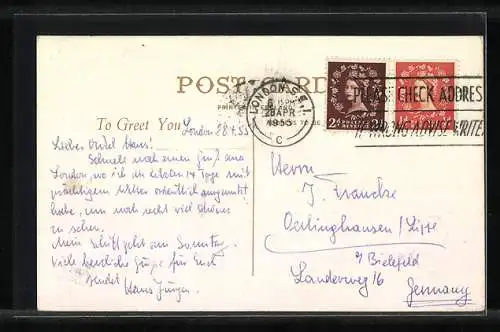 POST CARD
PRINTED
TO BE
To Greet You
London 28.4.55
Lieber Onkel Hans!
Schnell noch einen Gruß aus
London, wo ich die letzten 14 Tage mit
prächtigem Wetter ordentlich ausgenutzt
habe, um noch recht viel schönes
zu sehen.
Mein Schiff geht am Sonntag
Viele herzliche Grüße für Euch
sendet
Hans Jürgen.
LONDON. S.E.1.
28 APR
1955
C
2D
POSTAGE REVENUE
2D
PLEASE CHECK ADDRESS
IF WRONG ADVISE WRITER
Herrn
J. Francke
Oerlinghausen / Lippe
b/ Bielefeld
Landerweg 16
Germany